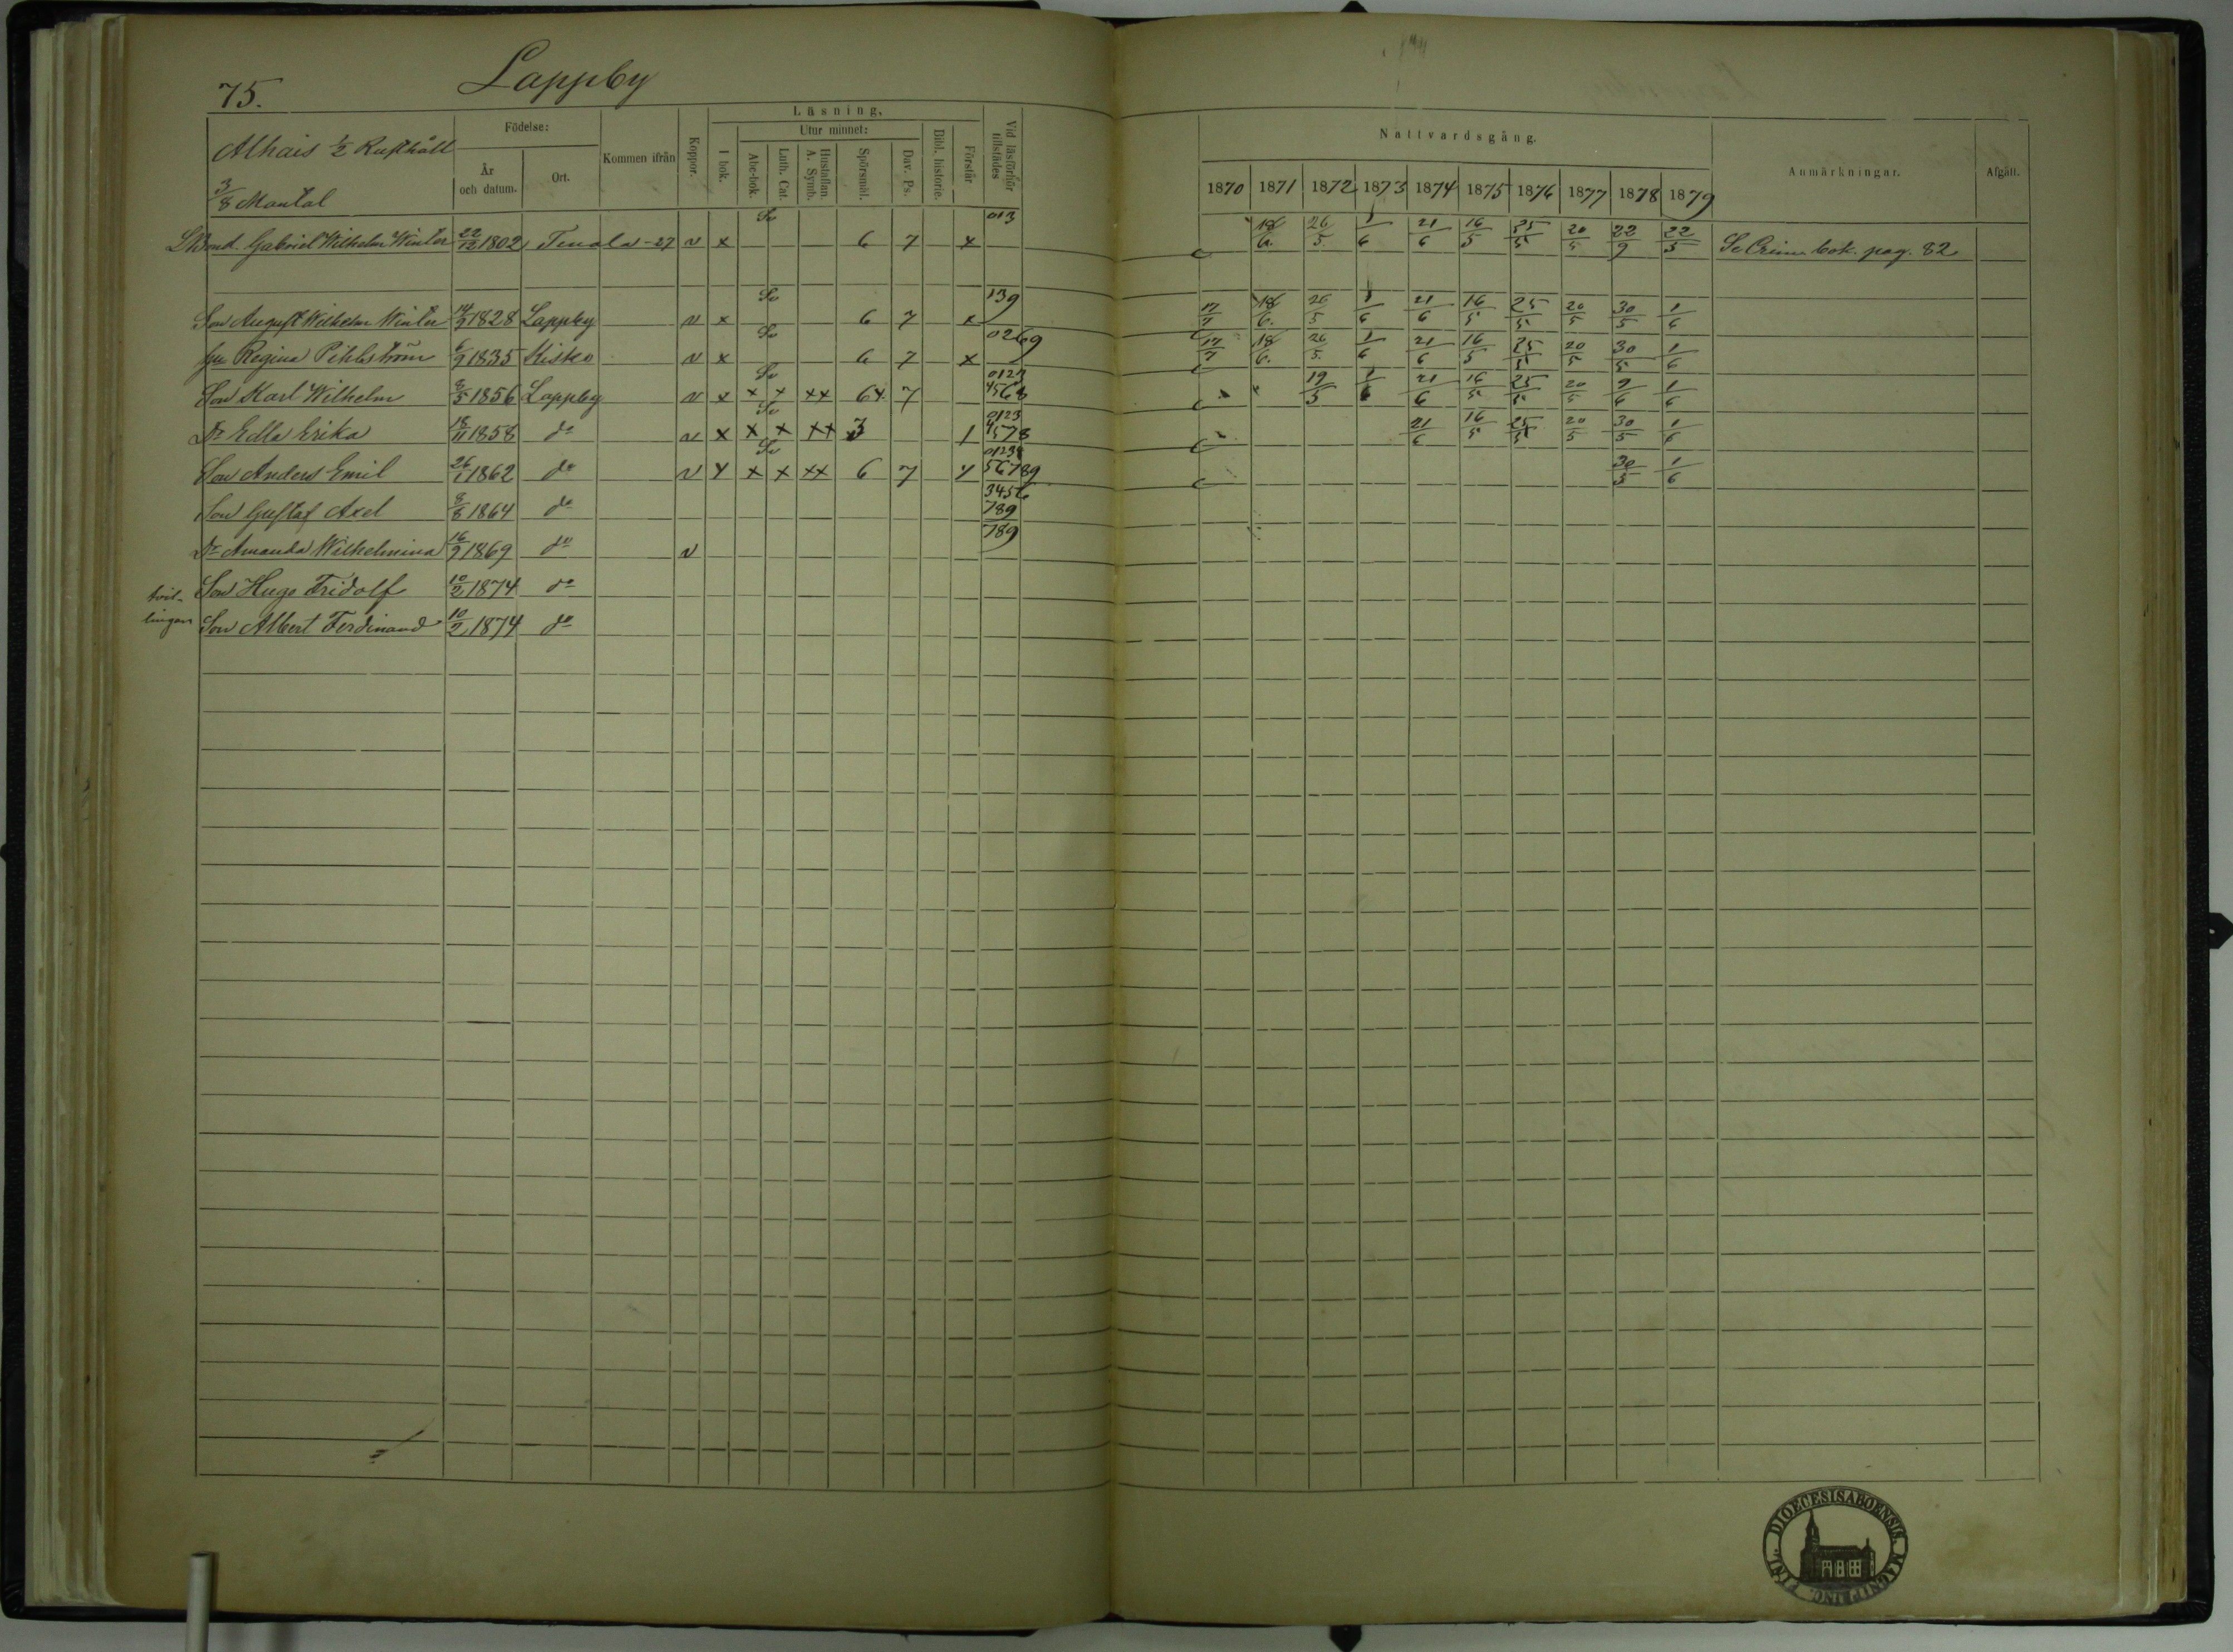 75. Lappby
Alhais 1/2 Rusthåll
3/8 Mantal
Födelse:
År och datum.
Ort.
Kommen ifrån
Koppor.
Läsning.
I bok.
Utur minnet:
Abc-bok.
Luth. Cat.
Hustaflan. A. Symb.
Spörsmål.
Dav. Ps.
Bibl. historie.
Förstår
Vid läsförhör tillstädes
Nattvardsgång.
1870 1871 1872 1873 1874 1875 1876 1877 1878 1879
Anmärkningar.
Afgått.
Gabriel Wilhelm Winter 22/12 1802 Tenala-27 v x Sv 6 7 x 013 18/6. 26/5. 1/6 21/6 16/5 25/5 20/5 22/9 22/5 Se Crim. bok. pag. 82
Son August Wilhelm Winter 14/9 1828 Lappby v x Sv 6 7 x 139 17/7 18/6. 26/5 1/6 21/6 16/5 25/5 20/5 30/5 1/6
Hu Regina Pihlström 6/9 1835 Kisko v x Sv 6 7 x 0269 17/7 18/6. 26/5. 1/6 21/6 16/5 25/5 20/5 30/5 1/6
Son Karl Wilhelm 8/5 1856 Lappby v x Sv x x xx 6x 7 0123 4568 19/5 1/6 21/6 16/5 25/5 20/5 9/6 1/6
Dr Edla Erika 18/11 1858 do v x Sv x x xx 3 1 0123 4578 21/6 16/5 25/5 20/5 30/5 1/6
Son Anders Emil 26/1 1862 do v x Sv x x xx 6 7 x 01234 56789 30/5 1/6
Son Gustaf Axel 8/8 1864 do 3456 789
Dr Amanda Wilhelmina 16/9 1869 do v 789
tvil-
Son Hugo Fridolf 10/2 1874 do
lingar
Son Albert Ferdinand 10/2 1874 do
DIOECESIS ABOENSIS. MAGNI PRINC. FINL.